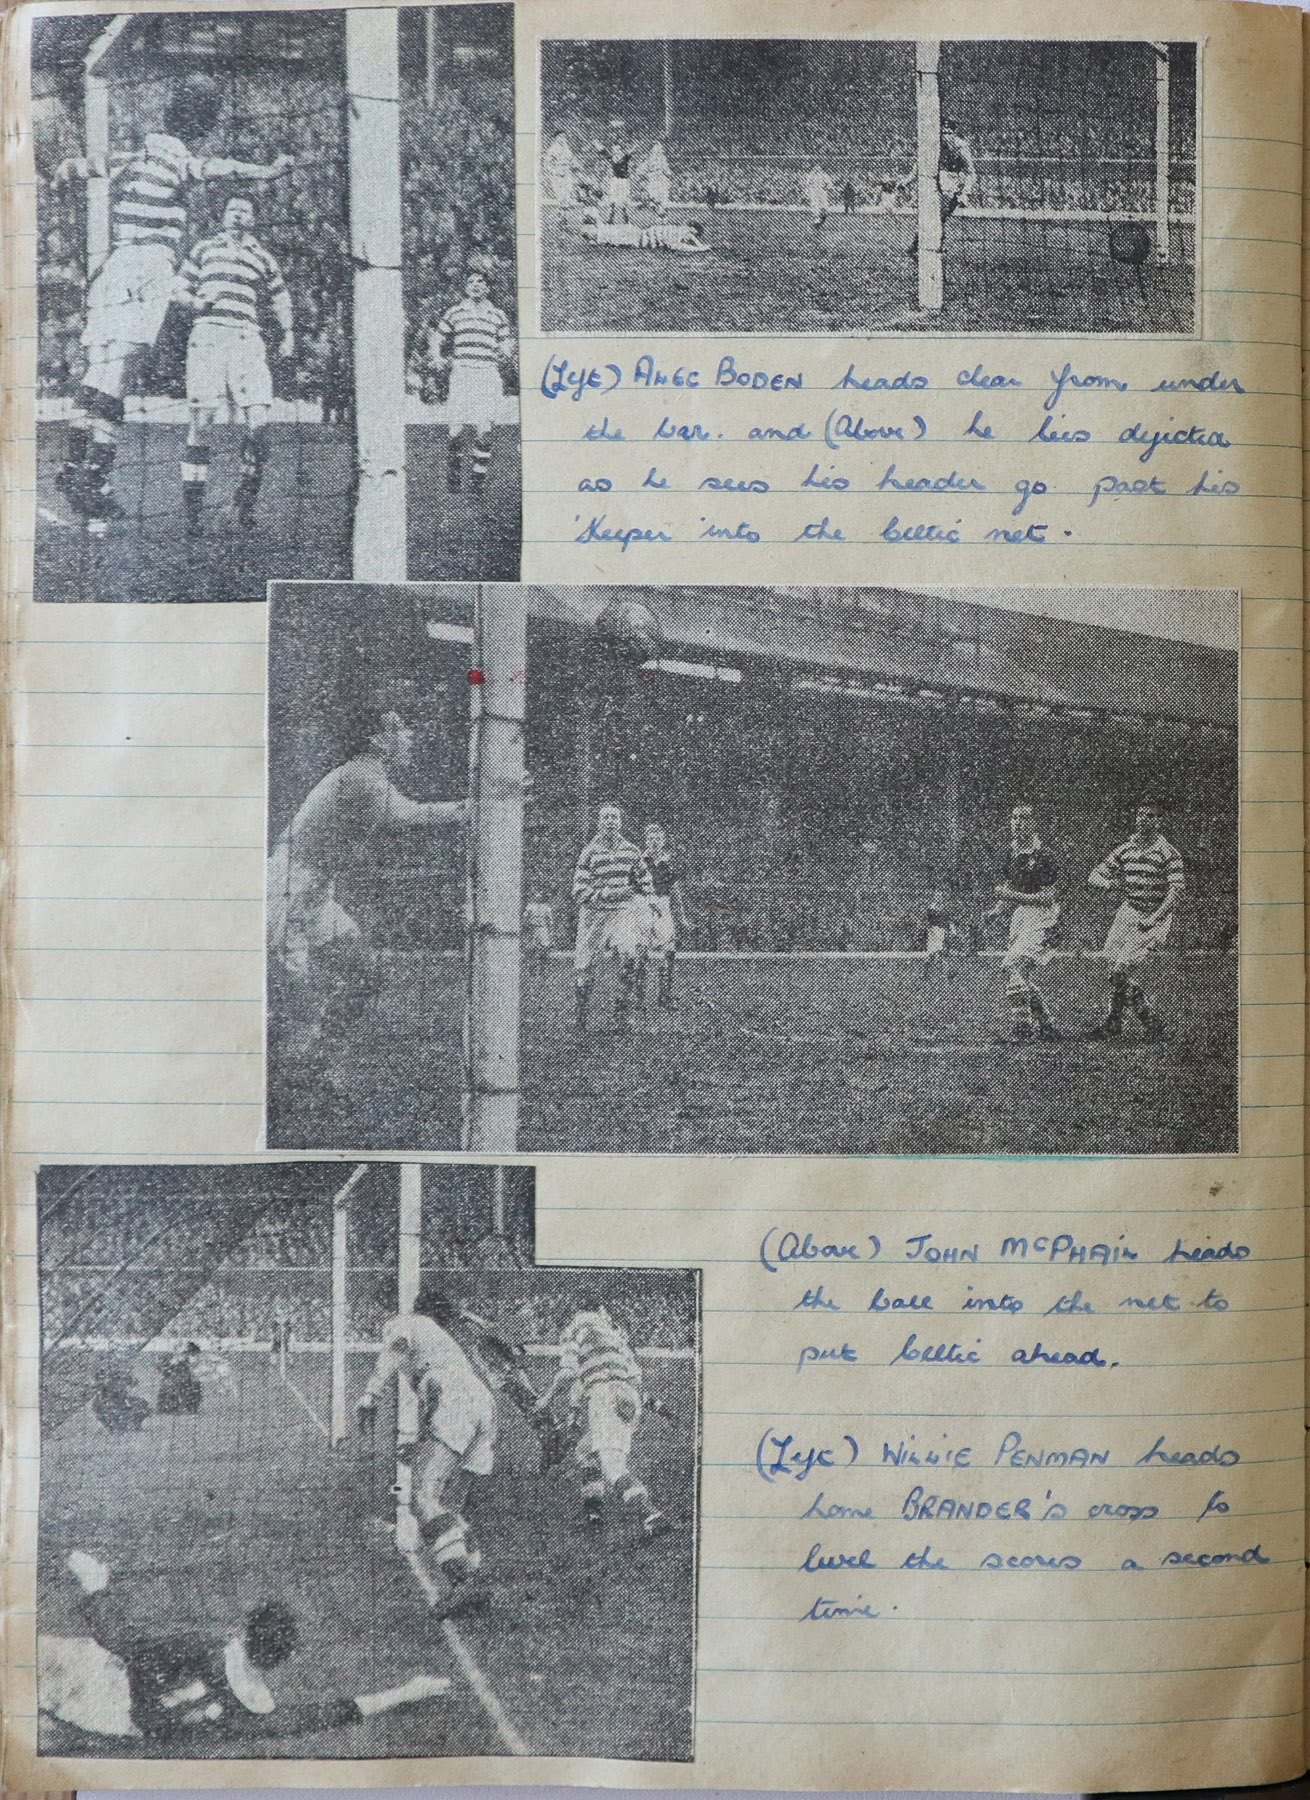 (Left) ALEC BODEN heads clear from under
the bar. and (Above) he lies dejected
as he sees his header go past his
'Keeper into the Celtic net.
(Above) JOHN McPHAIL heads
the ball into the net to
put Celtic ahead.
(Left) WILLIE PENMAN heads
home BRANDER'S cross to
level the scores a second
time.